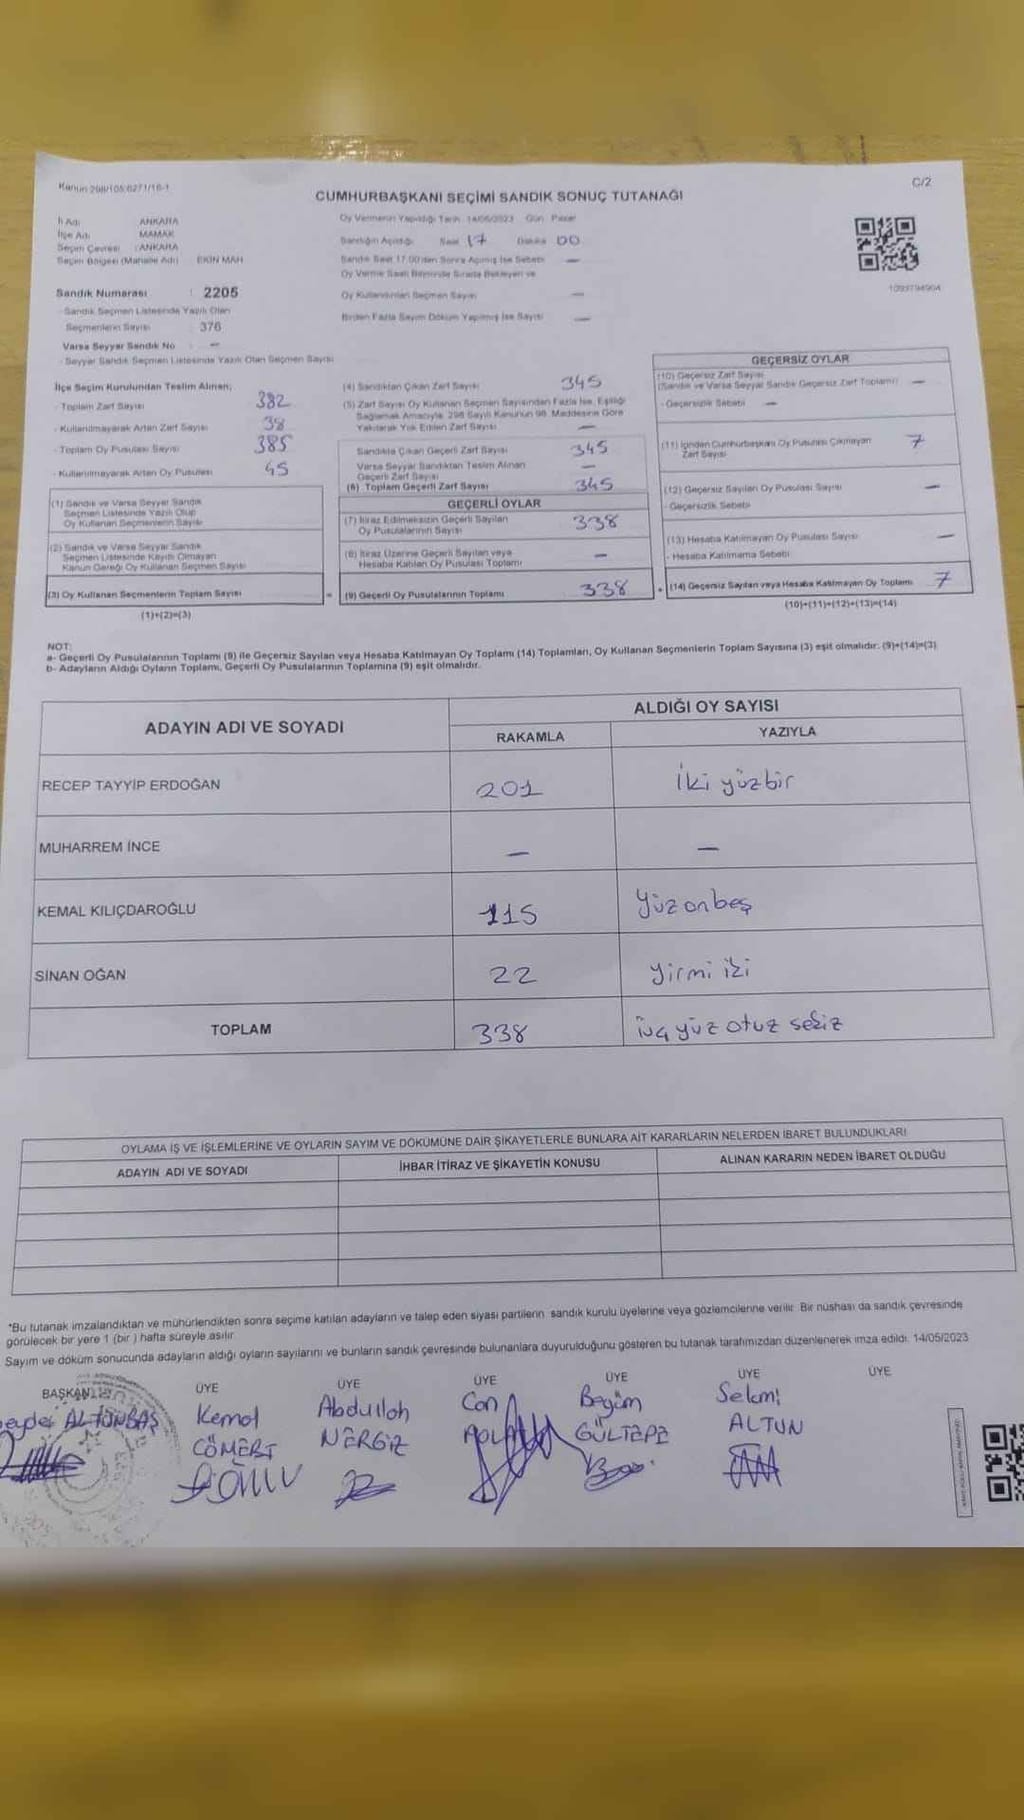 Kanun 298/105;6271/16-1
C/2
CUMHURBAŞKANI SEÇİMİ SANDIK SONUÇ TUTANAĞI
İl Adı ANKARA
İlçe Adı MAMAK
Seçim Çevresi : ANKARA
Seçim Bölgesi (Mahalle Adı) EKİN MAH
Sandık Numarası : 2205
- Sandık Seçmen Listesinde Yazılı Olan
Seçmenlerin Sayısı : 376
Varsa Seyyar Sandık No : —
- Seyyar Sandık Seçmen Listesinde Yazılı Olan Seçmen Sayısı
Oy Vermenin Yapıldığı Tarih 14/05/2023 Gün Pazar
Sandığın Açıldığı Saat 17 Dakika 00
Sandık Saat 17.00'den Sonra Açılmış İse Sebebi —
Oy Verme Saati Bitiminde Sırada Bekleyen ve
Oy Kullandırılan Seçmen Sayısı —
Birden Fazla Sayım Döküm Yapılmış İse Sayısı —
1093794904
İlçe Seçim Kurulundan Teslim Alınan;
- Toplam Zarf Sayısı 382
- Kullanılmayarak Artan Zarf Sayısı 38
- Toplam Oy Pusulası Sayısı 385
- Kullanılmayarak Artan Oy Pusulası 45
(1) Sandık ve Varsa Seyyar Sandık
Seçmen Listesinde Yazılı Olup
Oy Kullanan Seçmenlerin Sayısı
(2) Sandık ve Varsa Seyyar Sandık
Seçmen Listesinde Kayıtlı Olmayan
Kanun Gereği Oy Kullanan Seçmen Sayısı
(3) Oy Kullanan Seçmenlerin Toplam Sayısı
(1)+(2)=(3)
(4) Sandıktan Çıkan Zarf Sayısı 345
(5) Zarf Sayısı Oy Kullanan Seçmen Sayısından Fazla İse, Eşitliği
Sağlamak Amacıyla, 298 Sayılı Kanunun 98. Maddesine Göre
Yakılarak Yok Edilen Zarf Sayısı —
Sandıkta Çıkan Geçerli Zarf Sayısı 345
Varsa Seyyar Sandıktan Teslim Alınan
Geçerli Zarf Sayısı —
(6) Toplam Geçerli Zarf Sayısı 345
GEÇERLİ OYLAR
(7) İtiraz Edilmeksizin Geçerli Sayılan
Oy Pusulalarının Sayısı 338
(8) İtiraz Üzerine Geçerli Sayılan veya
Hesaba Katılan Oy Pusulası Toplamı —
= (9) Geçerli Oy Pusulalarının Toplamı 338
GEÇERSİZ OYLAR
(10) Geçersiz Zarf Sayısı
(Sandık ve Varsa Seyyar Sandık Geçersiz Zarf Toplamı) —
- Geçersizlik Sebebi —
(11) İçinden Cumhurbaşkanı Oy Pusulası Çıkmayan
Zarf Sayısı 7
(12) Geçersiz Sayılan Oy Pusulası Sayısı —
- Geçersizlik Sebebi
(13) Hesaba Katılmayan Oy Pusulası Sayısı —
- Hesaba Katılmama Sebebi
+ (14) Geçersiz Sayılan veya Hesaba Katılmayan Oy Toplamı 7
(10)+(11)+(12)+(13)=(14)
NOT:
a- Geçerli Oy Pusulalarının Toplamı (9) ile Geçersiz Sayılan veya Hesaba Katılmayan Oy Toplamı (14) Toplamları, Oy Kullanan Seçmenlerin Toplam Sayısına (3) eşit olmalıdır. (9)+(14)=(3)
b- Adayların Aldığı Oyların Toplamı, Geçerli Oy Pusulalarının Toplamına (9) eşit olmalıdır.
ADAYIN ADI VE SOYADI
ALDIĞI OY SAYISI
RAKAMLA YAZIYLA
RECEP TAYYİP ERDOĞAN 201 iki yüzbir
MUHARREM İNCE — —
KEMAL KILIÇDAROĞLU 115 yüzonbeş
SİNAN OĞAN 22 yirmi iki
TOPLAM 338 üç yüz otuz sekiz
OYLAMA İŞ VE İŞLEMLERİNE VE OYLARIN SAYIM VE DÖKÜMÜNE DAİR ŞİKAYETLERLE BUNLARA AİT KARARLARIN NELERDEN İBARET BULUNDUKLARI
ADAYIN ADI VE SOYADI İHBAR İTİRAZ VE ŞİKAYETİN KONUSU ALINAN KARARIN NEDEN İBARET OLDUĞU
*Bu tutanak imzalandıktan ve mühürlendikten sonra seçime katılan adayların ve talep eden siyasi partilerin sandık kurulu üyelerine veya gözlemcilerine verilir. Bir nüshası da sandık çevresinde
görülecek bir yere 1 (bir ) hafta süreyle asılır.
Sayım ve döküm sonucunda adayların aldığı oyların sayılarını ve bunların sandık çevresinde bulunanlara duyurulduğunu gösteren bu tutanak tarafımızdan düzenlenerek imza edildi. 14/05/2023
BAŞKAN ÜYE ÜYE ÜYE ÜYE ÜYE ÜYE
ALTUNBAŞ
Kemal
CÖMERT
Abdullah
NERGİZ
Can
Begüm
GÜLTEPE
Selami
ALTUN